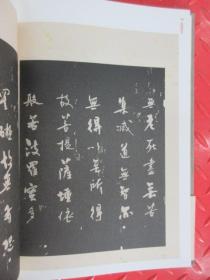 無老死盡無苦
集滅道無智亦
無得以無所得
故菩提薩埵依
般若波羅蜜多
罣礙故無有恐